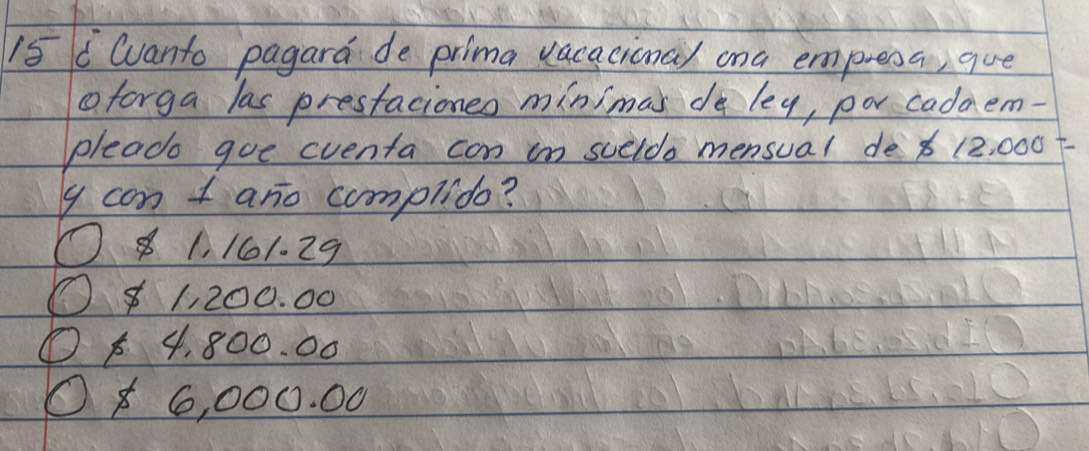 15 ¿Cuanto pagará de prima vacacional una empresa, que
otorga las prestaciones mínimas de ley, por cada em-
pleado que cuenta con un sueldo mensual de $ 12.000 =
y con 1 año complido?
○ $ 1,161.29
○ $ 1,200.00
○ $ 4,800.00
○ $ 6,000.00